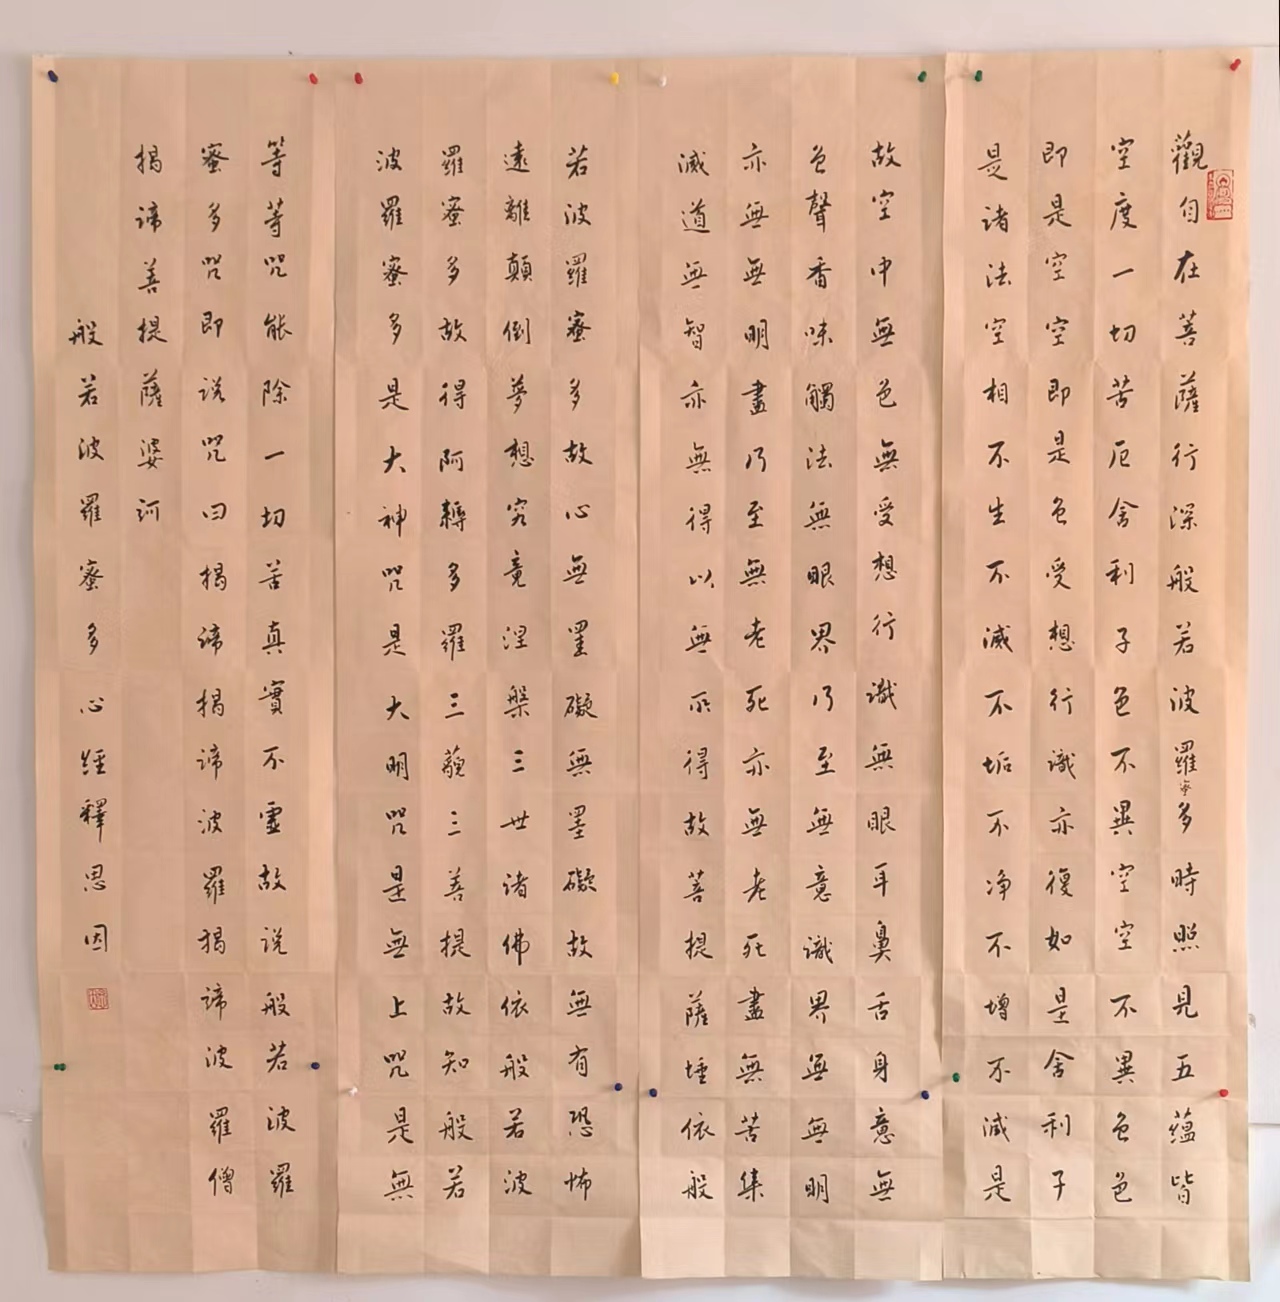 觀自在菩薩行深般若波羅蜜多時照見五蘊皆
空度一切苦厄舍利子色不異空空不異色色
即是空空即是色受想行識亦復如是舍利子
是諸法空相不生不滅不垢不净不增不減是
故空中無色無受想行識無眼耳鼻舌身意無
色聲香味觸法無眼界乃至無意識界無無明
亦無無明盡乃至無老死亦無老死盡無苦集
滅道無智亦無得以無所得故菩提薩埵依般
若波羅蜜多故心無罣礙無罣礙故無有恐怖
遠離顛倒夢想究竟涅槃三世諸佛依般若波
羅蜜多故得阿耨多羅三藐三菩提故知般若
波羅蜜多是大神咒是大明咒是無上咒是無
等等咒能除一切苦真實不虛故説般若波羅
蜜多咒即説咒曰揭諦揭諦波羅揭諦波羅僧
揭諦菩提薩婆訶
般若波羅蜜多心經釋思因